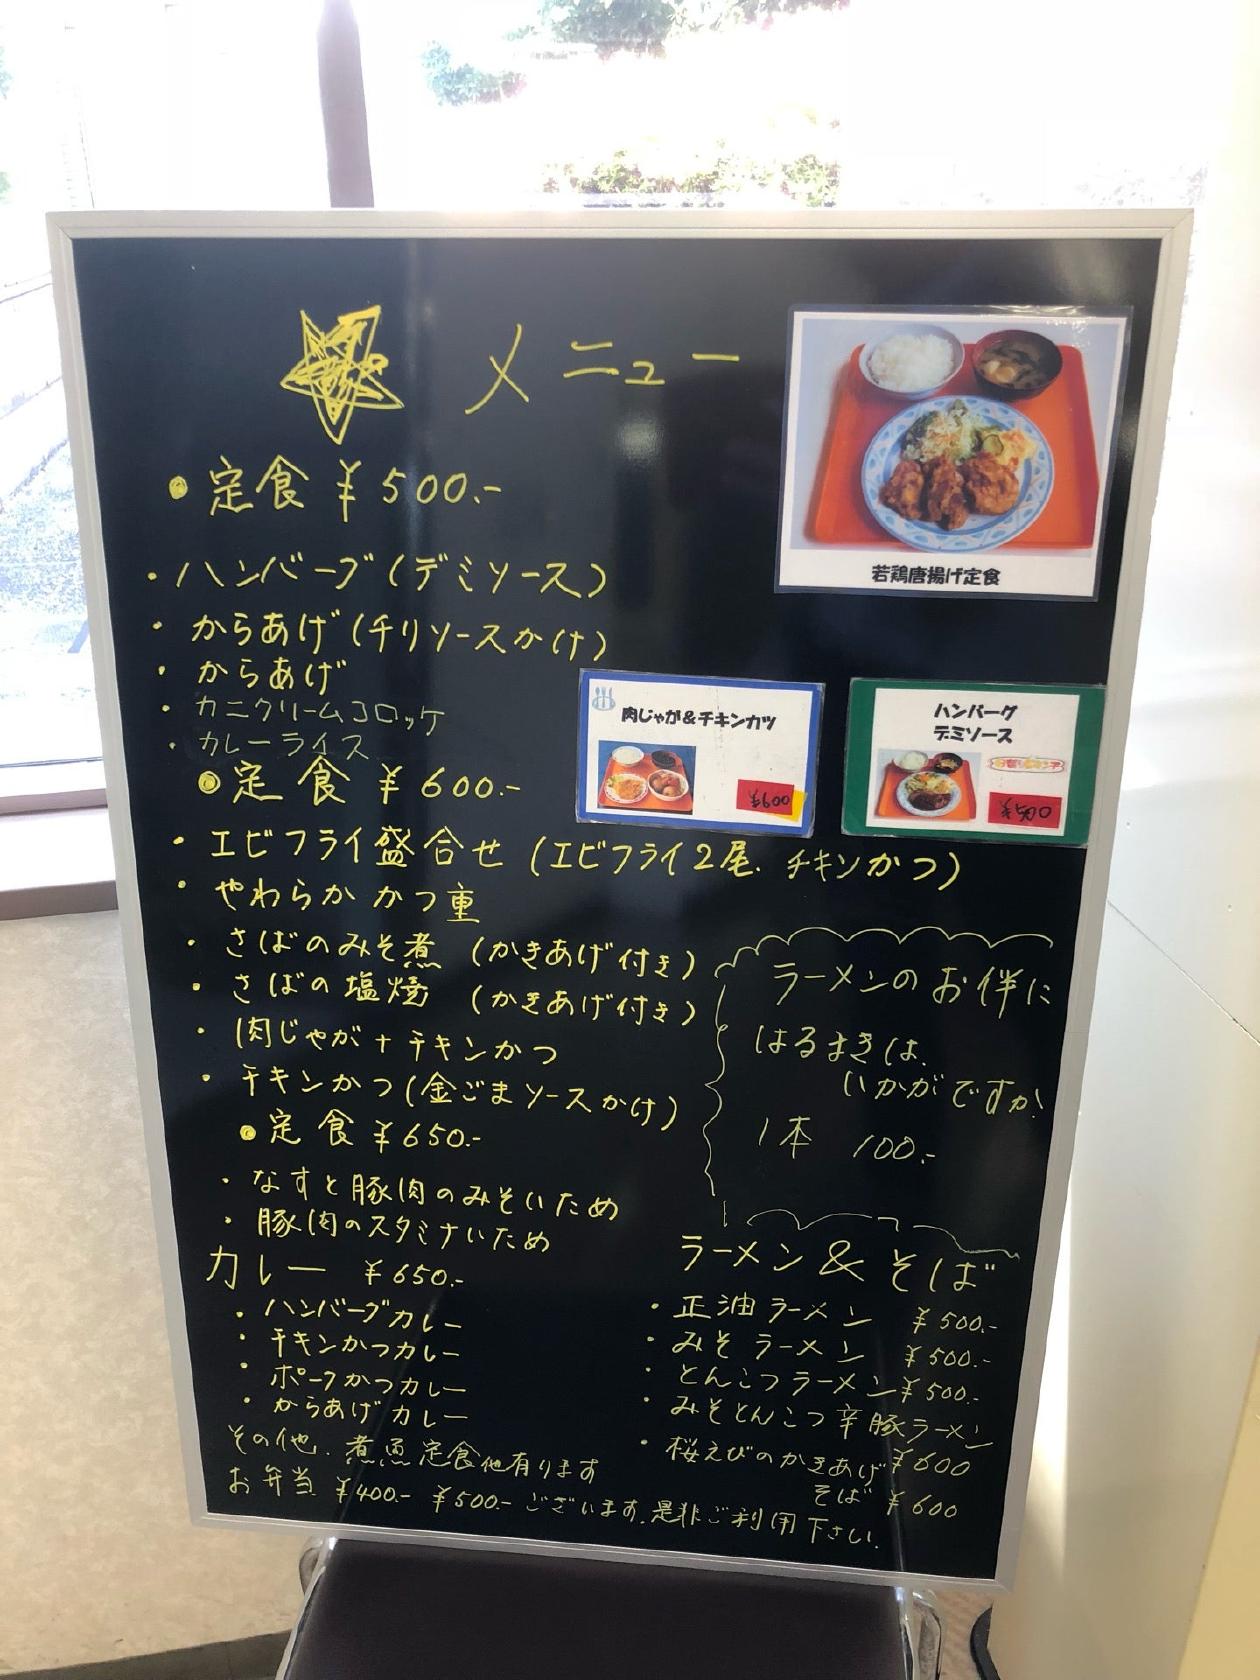 メニュー
• 定食 ¥500.-
・ハンバーグ(デミソース)
・からあげ(チリソースかけ)
・からあげ
・カニクリームコロッケ
・カレーライス
• 定食 ¥600.-
・エビフライ盛合せ(エビフライ2尾.チキンかつ)
・やわらかかつ重
・さばのみそ煮 (かきあげ付き)
・さばの塩焼 (かきあげ付き)
・肉じゃが+チキンかつ
・チキンかつ(金ごまソースかけ)
• 定食 ¥650.-
・なすと豚肉のみそいため
・豚肉のスタミナいため
カレー ¥650.-
・ハンバーグカレー
・チキンかつカレー
・ポークかつカレー
・からあげカレー
その他.煮魚定食他有ります
お弁当 ¥400.- ¥500.- ございます.是非ご利用下さい.
若鶏唐揚げ定食
肉じゃが&チキンカツ
¥600
ハンバーグ
デミソース
¥500
ラーメンのお伴に
はるまきは、
いかがですか!
1本 100.-
ラーメン & そば
・正油ラーメン ¥500.-
・みそラーメン ¥500.-
・とんこつラーメン ¥500.-
・みそとんこつ辛豚ラーメン
¥600
・桜えびのかきあげ
そば ¥600